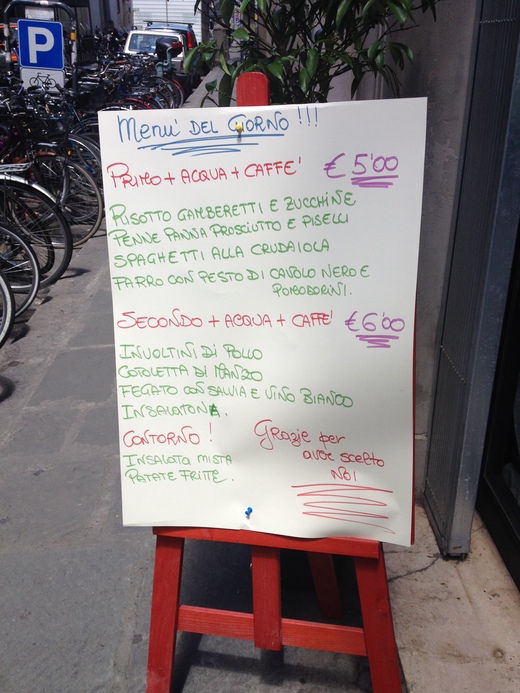 P
Menu' DEL GIORNO !!!
PRIMO + ACQUA + CAFFE' € 5'00
RISOTTO GAMBERETTI E ZUCCHINE
PENNE PANNA PROSCIUTTO E PISELLI
SPAGHETTI ALLA CRUDAIOLA
FARRO CON PESTO DI CAVOLO NERO E
POMODORINI.
SECONDO + ACQUA + CAFFE' € 6'00
INVOLTINI DI POLLO
COTOLETTA DI MANZO
FEGATO CON SALVIA E VINO BIANCO
INSALATONA.
CONTORNO !
INSALATA MISTA
PATATE FRITTE.
Grazie per
aver scelto
NOI